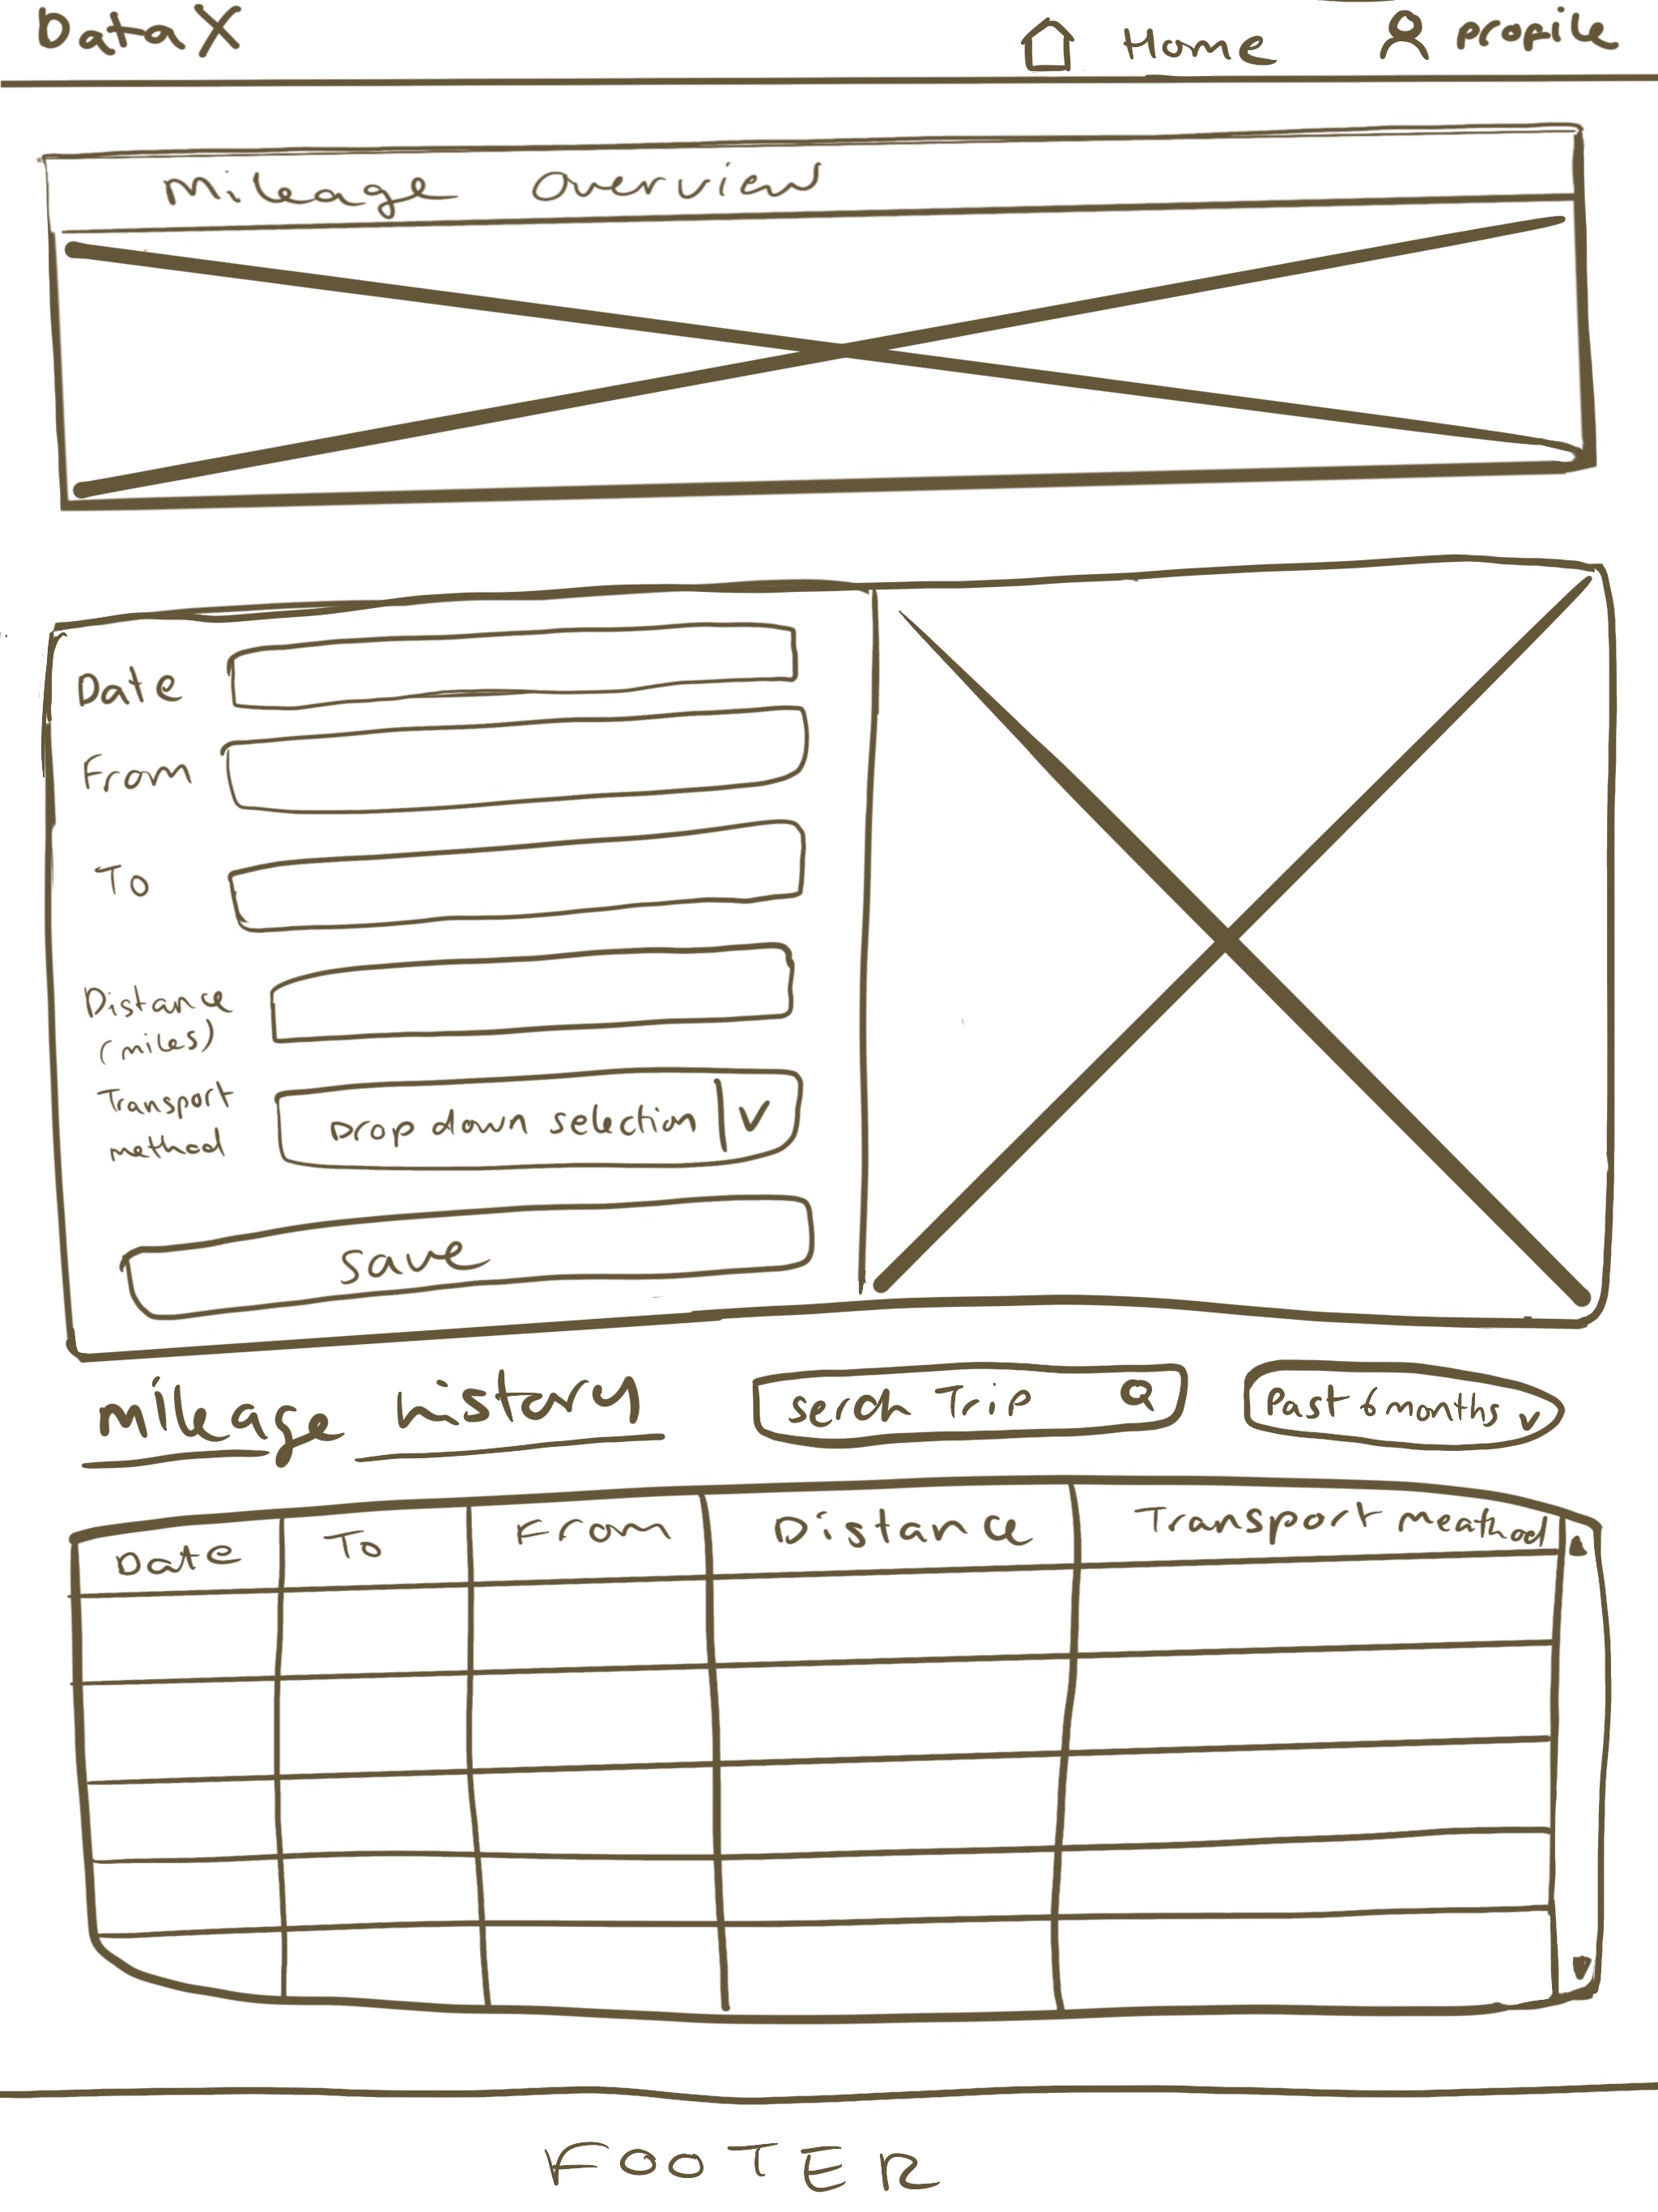 DataX Home Profile
Mileage Overview
Date
From
To
Distance
(miles)
Transport
method
Drop down selection V
Save
Mileage history
serch Trip
Past 6 months v
Date To From Distance Transport meathod
FOOTER